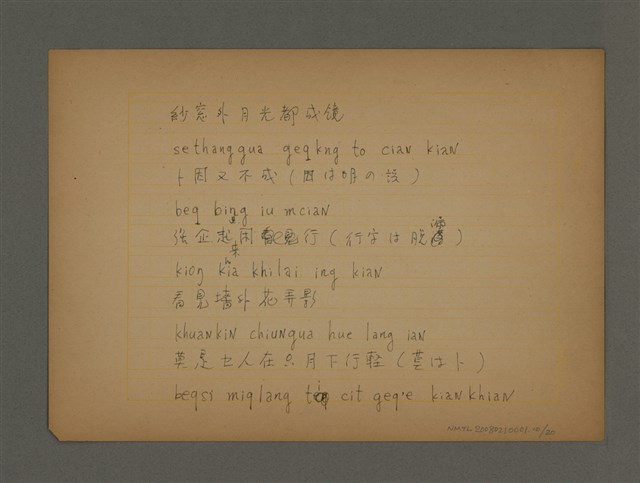 紗窓外月光都成镜
sethanggua geqkng to cian kian
卜因又不成（因は明の誤）
beq bing iu mcian
強企起来閑行（行字は脱漏）
kiong kia khilai ing kian
看見墻外花弄影
khuankin chiungua hue lang ian
莫是乜人在只月下行輕（莫は卜）
beqsi miqlang ti cit geq'e kiankhian